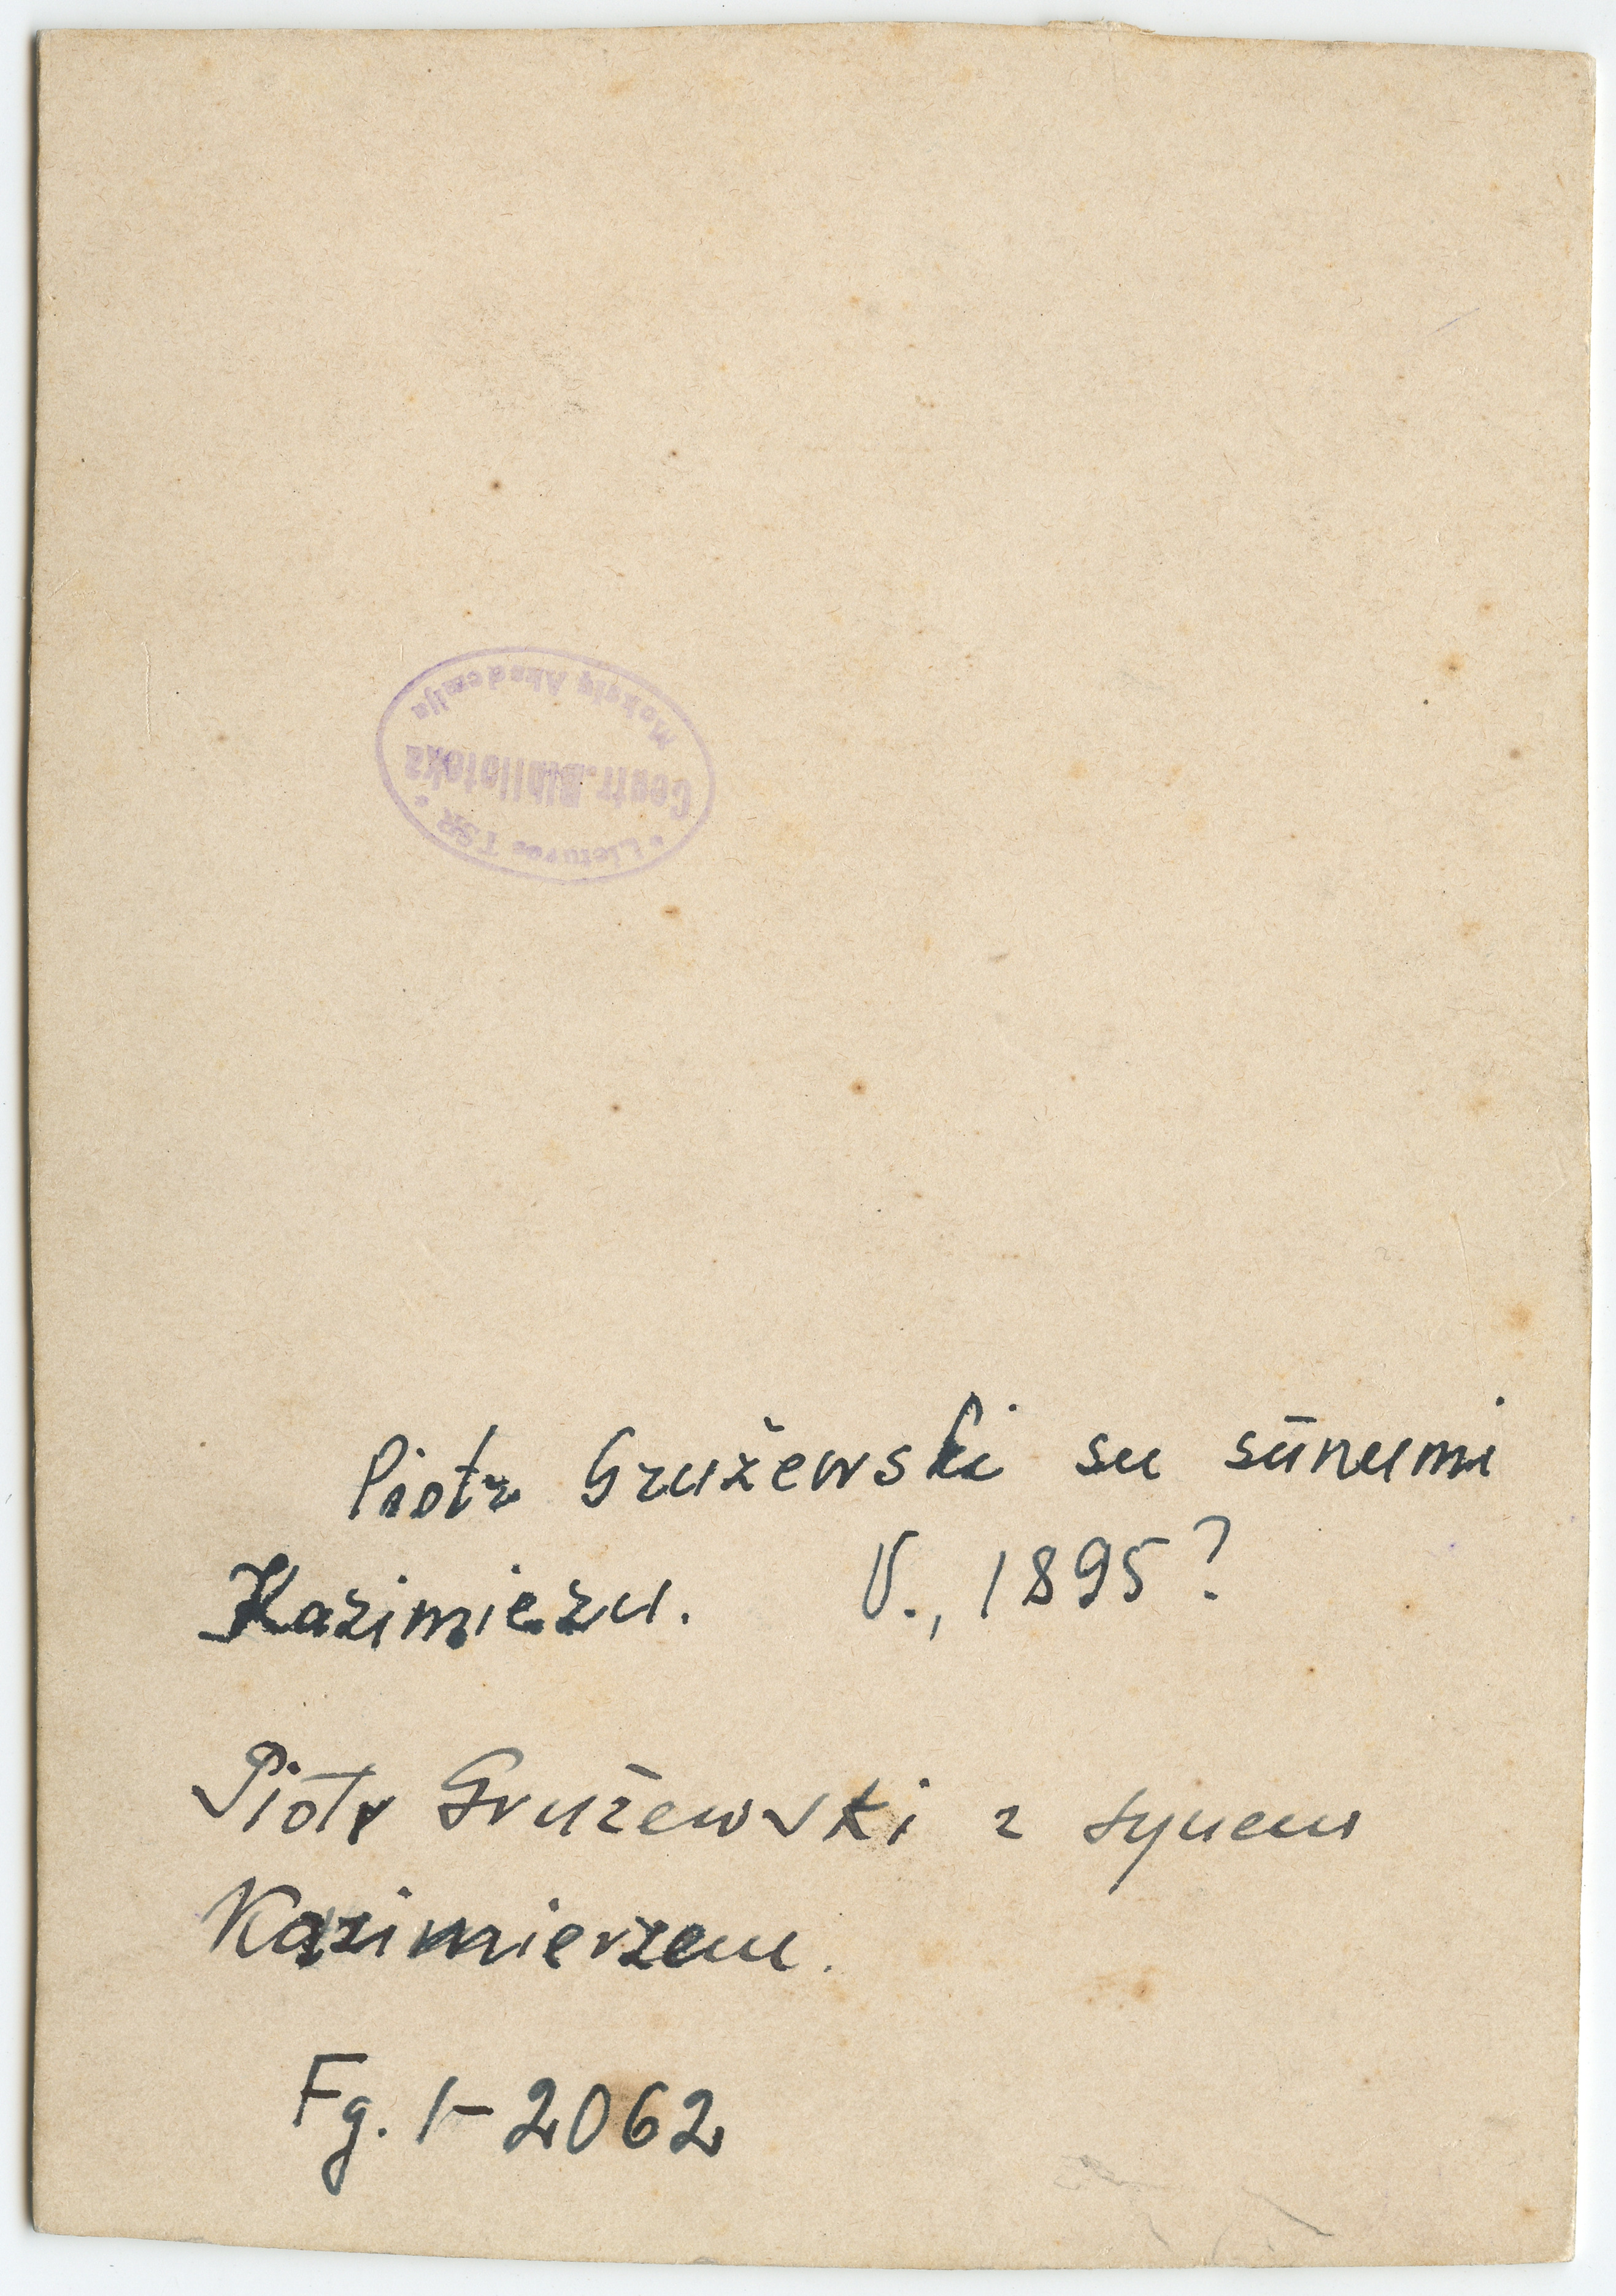 Lietuvos TSR
Centr. Biblioteka
Mokslų Akademija
Piotr Gružewski su sūnumi
Kazimieru. V., 1895?
Piotr Grużewski z synem
Kazimierzem.
Fg. 1-2062